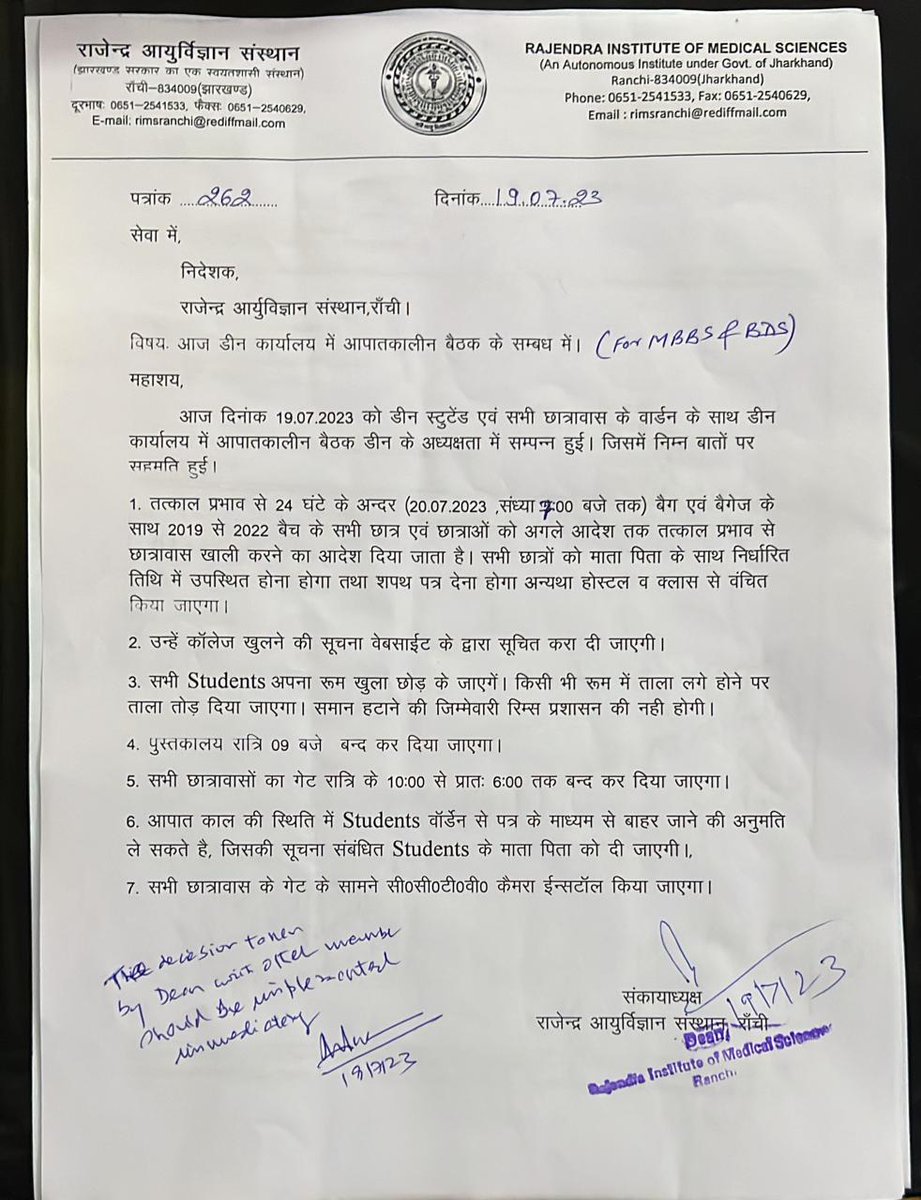 राजेन्द्र आयुर्विज्ञान संस्थान
(झारखण्ड सरकार का एक स्वयतशासी संस्थान)
राँची–834009(झारखण्ड)
दूरभाषः 0651-2541533, फैक्सः 0651-2540629,
E-mail: rimsranchi@rediffmail.com
RAJENDRA INSTITUTE OF MEDICAL SCIENCES
(An Autonomous Institute under Govt. of Jharkhand)
Ranchi-834009(Jharkhand)
Phone: 0651-2541533, Fax: 0651-2540629,
Email : rimsranchi@rediffmail.com
पत्रांक .....262....... दिनांक....19.07.23
सेवा में,
निदेशक,
राजेन्द्र आर्युविज्ञान संस्थान,राँची।
विषय. आज डीन कार्यालय में आपातकालीन बैठक के सम्बध में। (For MBBS & BDS)
महाशय,
आज दिनांक 19.07.2023 को डीन स्टुटेंड एवं सभी छात्रावास के वार्डन के साथ डीन
कार्यालय में आपातकालीन बैठक डीन के अध्यक्षता में सम्पन्न हुई। जिसमें निम्न बातों पर
सहमति हुई।
1. तत्काल प्रभाव से 24 घंटे के अन्दर (20.07.2023 ,संध्या 7:00 बजे तक) बैग एवं बैगेज के
साथ 2019 से 2022 बैच के सभी छात्र एवं छात्राओं को अगले आदेश तक तत्काल प्रभाव से
छात्रावास खाली करने का आदेश दिया जाता है। सभी छात्रों को माता पिता के साथ निर्धारित
तिथि में उपस्थित होना होगा तथा शपथ पत्र देना होगा अन्यथा होस्टल व क्लास से वंचित
किया जाएगा।
2. उन्हें कॉलेज खुलने की सूचना वेबसाईट के द्वारा सूचित करा दी जाएगी।
3. सभी Students अपना रूम खुला छोड़ के जाएगें। किसी भी रूम में ताला लगे होने पर
ताला तोड़ दिया जाएगा। समान हटाने की जिम्मेवारी रिम्स प्रशासन की नही होगी।
4. पुस्तकालय रात्रि 09 बजे बन्द कर दिया जाएगा।
5. सभी छात्रावासों का गेट रात्रि के 10:00 से प्रातः 6:00 तक बन्द कर दिया जाएगा।
6. आपात काल की स्थिति में Students वॉर्डेन से पत्र के माध्यम से बाहर जाने की अनुमति
ले सकते है, जिसकी सूचना संबंधित Students के माता पिता को दी जाएगी।,
7. सभी छात्रावास के गेट के सामने सी0सी0टी0वी0 कैमरा ईन्सटॉल किया जाएगा।
The decision taken
by Dean with other member
should be implemented
immediately
19/7/23
संकायाध्यक्ष
19/7/23
राजेन्द्र आयुर्विज्ञान संस्थान, राँची
Dean,
Rajendra Institute of Medical Science
Ranchi.